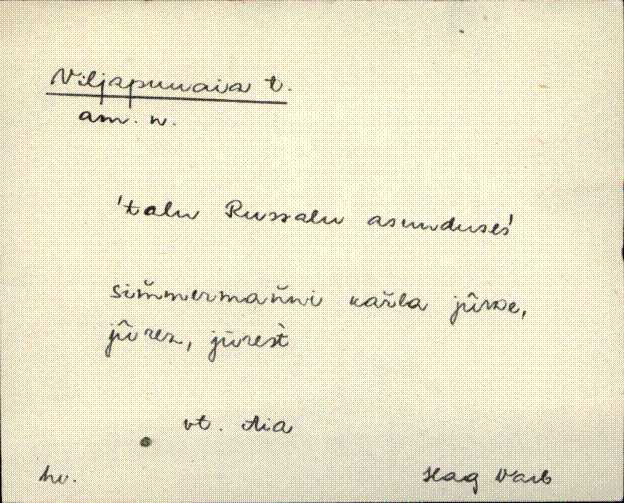 Viljapuuaia t.
am. n.
'talu Russalu asunduses'
sim̆mermaňni kařla jûrde,
jûrez, jūresť
vt. Aia
hv.
Hag Varb